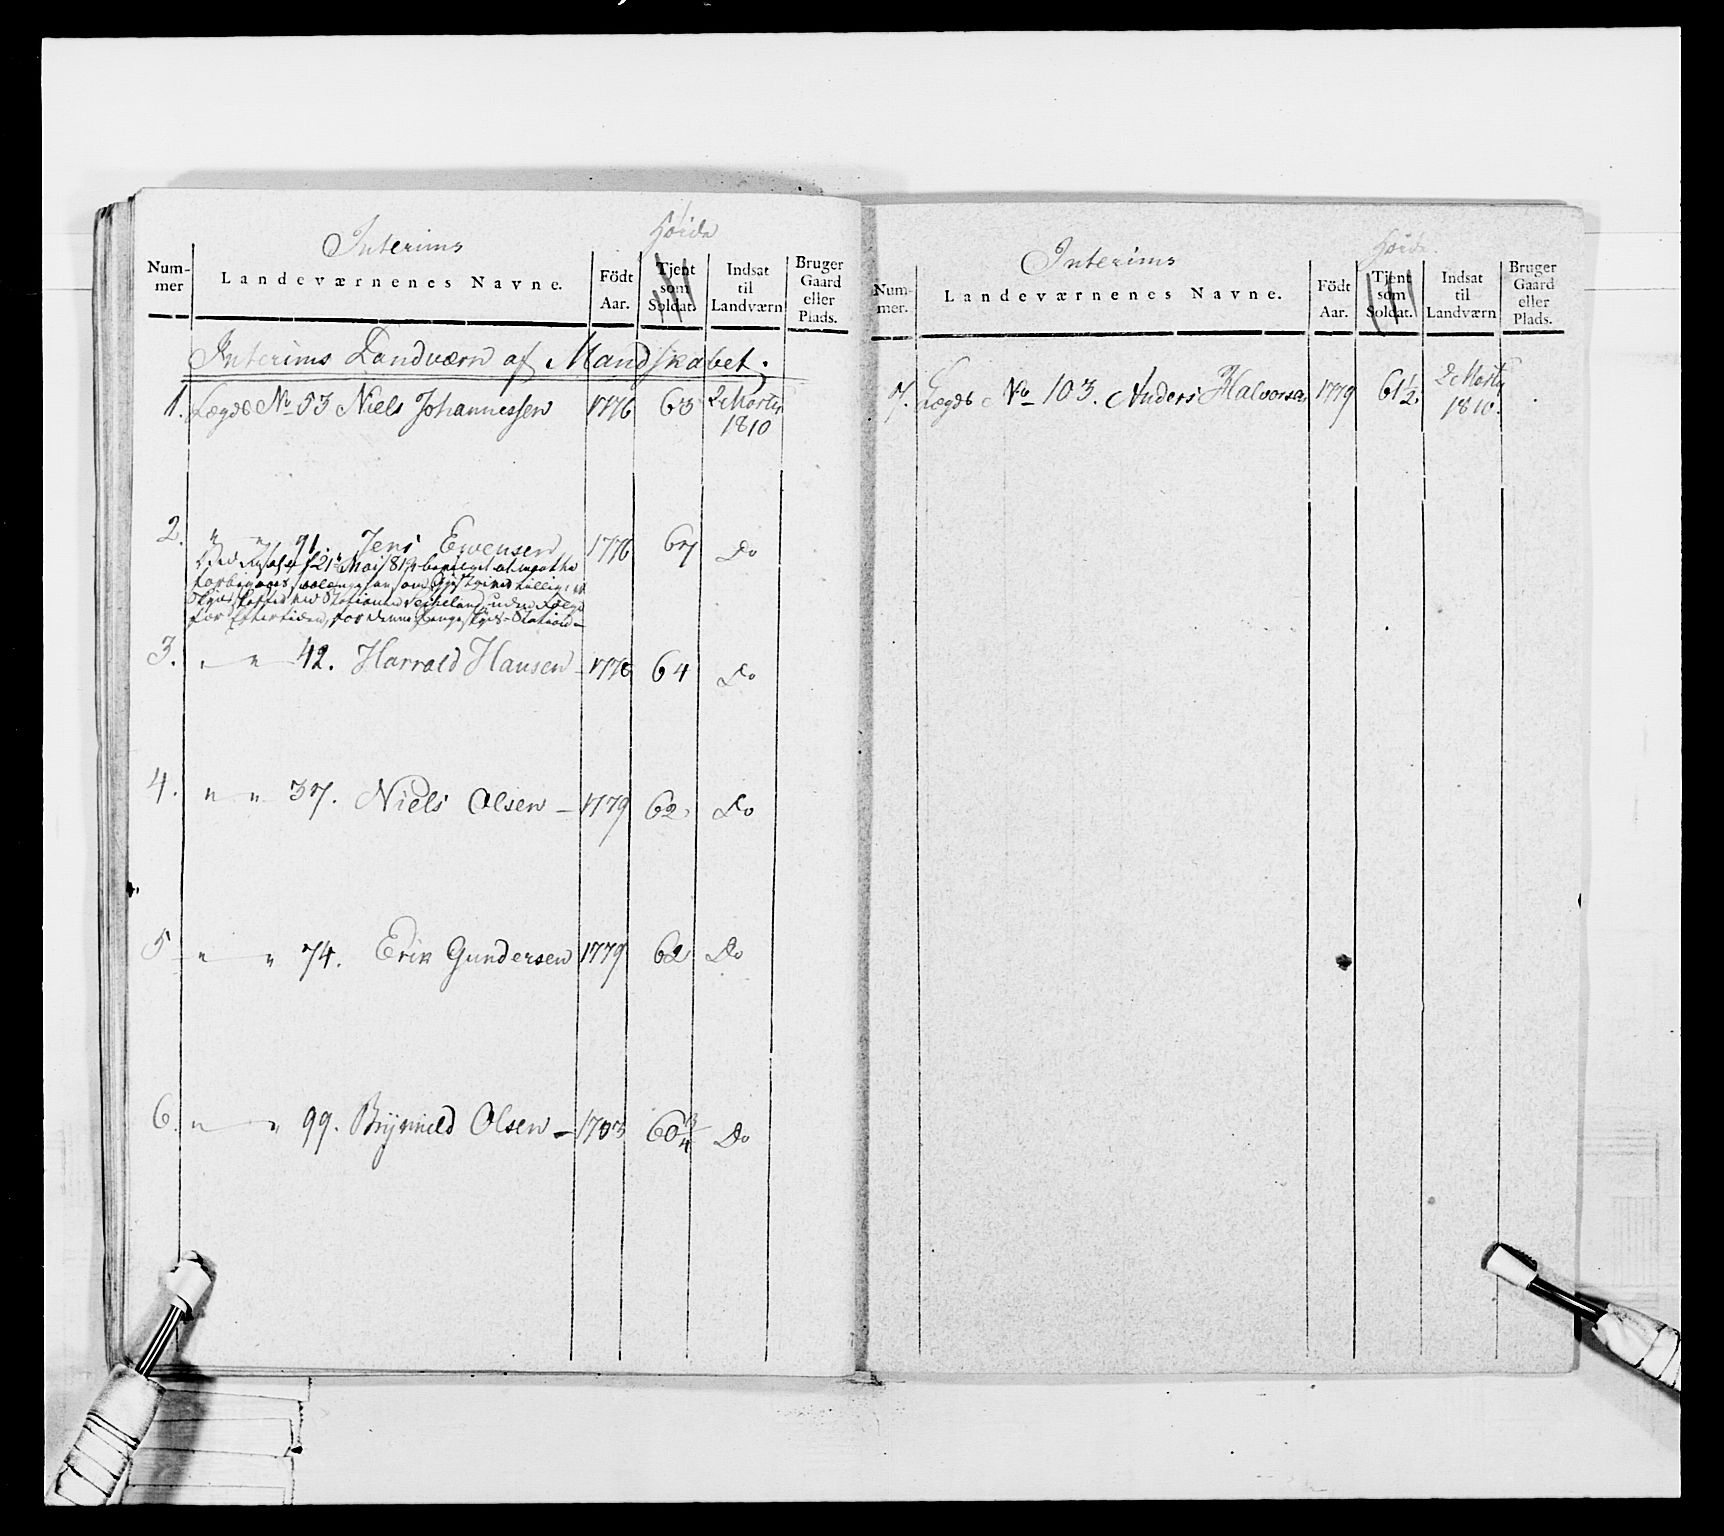 Interims
Höide
Num-
mer
Landeværnenes Navne.
Födt
Aar.
Tjent
som
Soldat.
Indsat
til
Landværn
Bruger
Gaard
eller
Plads.
Interims Landværn af Mandskabet.
1. Lægds No 53 Niels Johannessen 1776 63 2 Martz
1810
2. " " 91. Jens Evensen 1776 67 Do
21de Mai 1819
3. " " 42. Harrald Hansen 1778 64 Do
4. " " 37. Niels Olsen – 1779 62. Do
5 " " 74. Erik Gundersen 1779 62 Do
6. " " 99. Brynild Olsen – 60 3/4 Do
Interims
Höide.
Num-
mer.
Landeværnenes Navne.
Födt
Aar.
Tjent
som
Soldat.
Indsat
til
Landværn
Bruger
Gaard
eller
Plads.
7. Lægds No 103. Anders Halvorsen 1779 61 1/2. 2 Martz
1810.